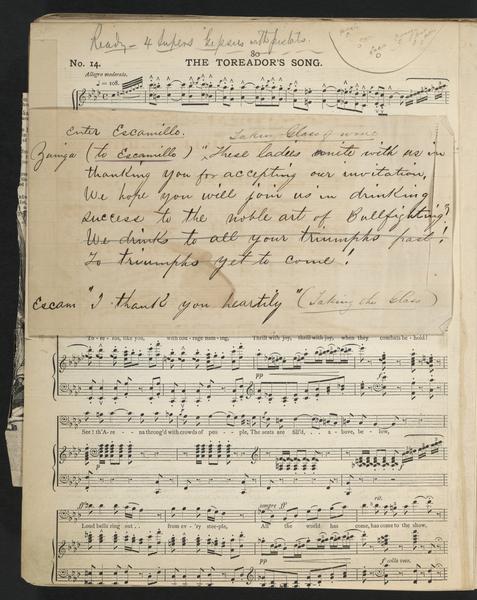 Ready - 4 Supers Gipsies with
80
No. 14. THE TOREADOR'S SONG.
Allegro moderato.
♩ = 108.
Enter Escamillo.
Taking Glass of wine
Zuniga (to Escamillo) "These ladies unite with us in
thanking you for accepting our invitation,
We hope you will join us in drinking
success to the noble art of Bullfighting"!
We drinks to all your triumphs past!
To triumphs yet to come!
Escam "I thank you heartily" (Taking the Glass)
To - re - ros, like you, with cou - rage nam - ing, Thrill with joy, thrill with joy, when they combats be - hold!
pp
See! th'A - re - na throng'd with crowds of peo - ple, The seats are fill'd, . . a - bove, be - low,
ff sempre ff rit.
Loud bells ring out . . from ev - 'ry stee - ple, All the world has come, has come to the show,
pp f colla voce.